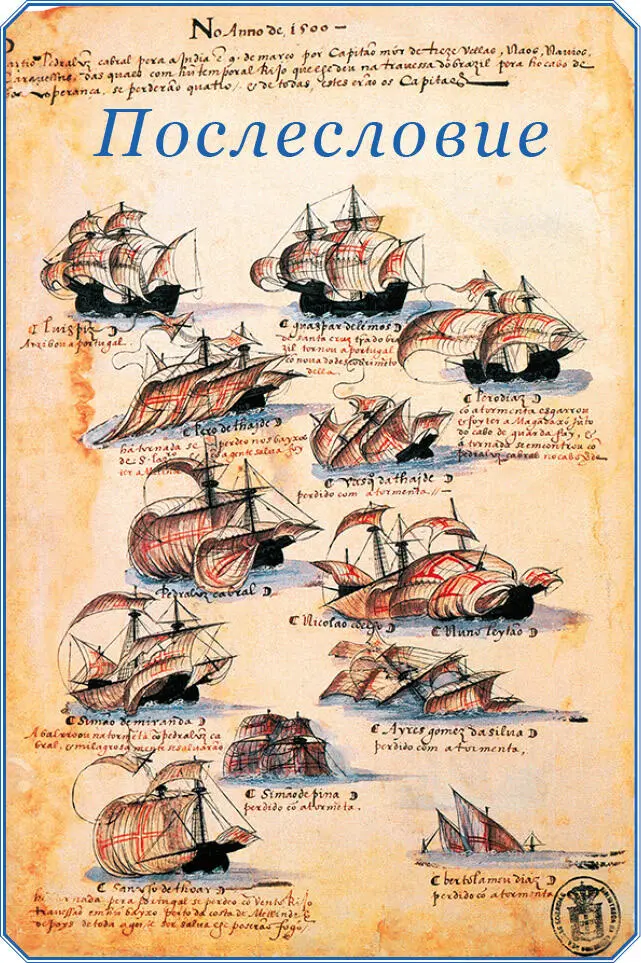 No Anno de, 1500 —
Pedraluz cabral pera a India ẽ 9. de março por Capitão mór de treze Vellas, Naos, Navios,
das quaes com hũ temporal Rijo que lhe deu na travessa do brazil pera ho cabo de
boa esperança, se perderão quatro / e de todas, estes erão os Capitaẽs
Послесловие
Luis piz
Arribou a portugal.
guaspar de lemos
de santa cruz
zil tornou a portugal
cõ nova do descobrimẽto
della.
Pero de thaide
ha tornada se perdeo nos baxos
de S. lazaro a gente salva foy
ter a Melinde
Pero diaz
cõ a tormenta esgarrou
e foy ter a Magadaxo jũto
do cabo de guardafuy, e
a tornada se encontrou cõ
pedraluz cabral no cabo
Vasq̃ dathaide
perdido com a tormenta //—
Pedraluz cabral
Nicolao coelho
Nuno leytão
Simão de miranda
Abalrroou na tormẽta cõ pedraluz ca
bral, e milagrosamente se salvarão
Ayres gomez da silva
perdido com a tormenta,
Simão de pina
perdido cõ a tormẽta.
Sancho de thoar
ha tornada pera portugal se perdeo cõ vento Rijo
travessão em hũ baxo perto da costa de Melinde
salva e poserão fogo
bertolameu diaz
perdido cõ a tormenta